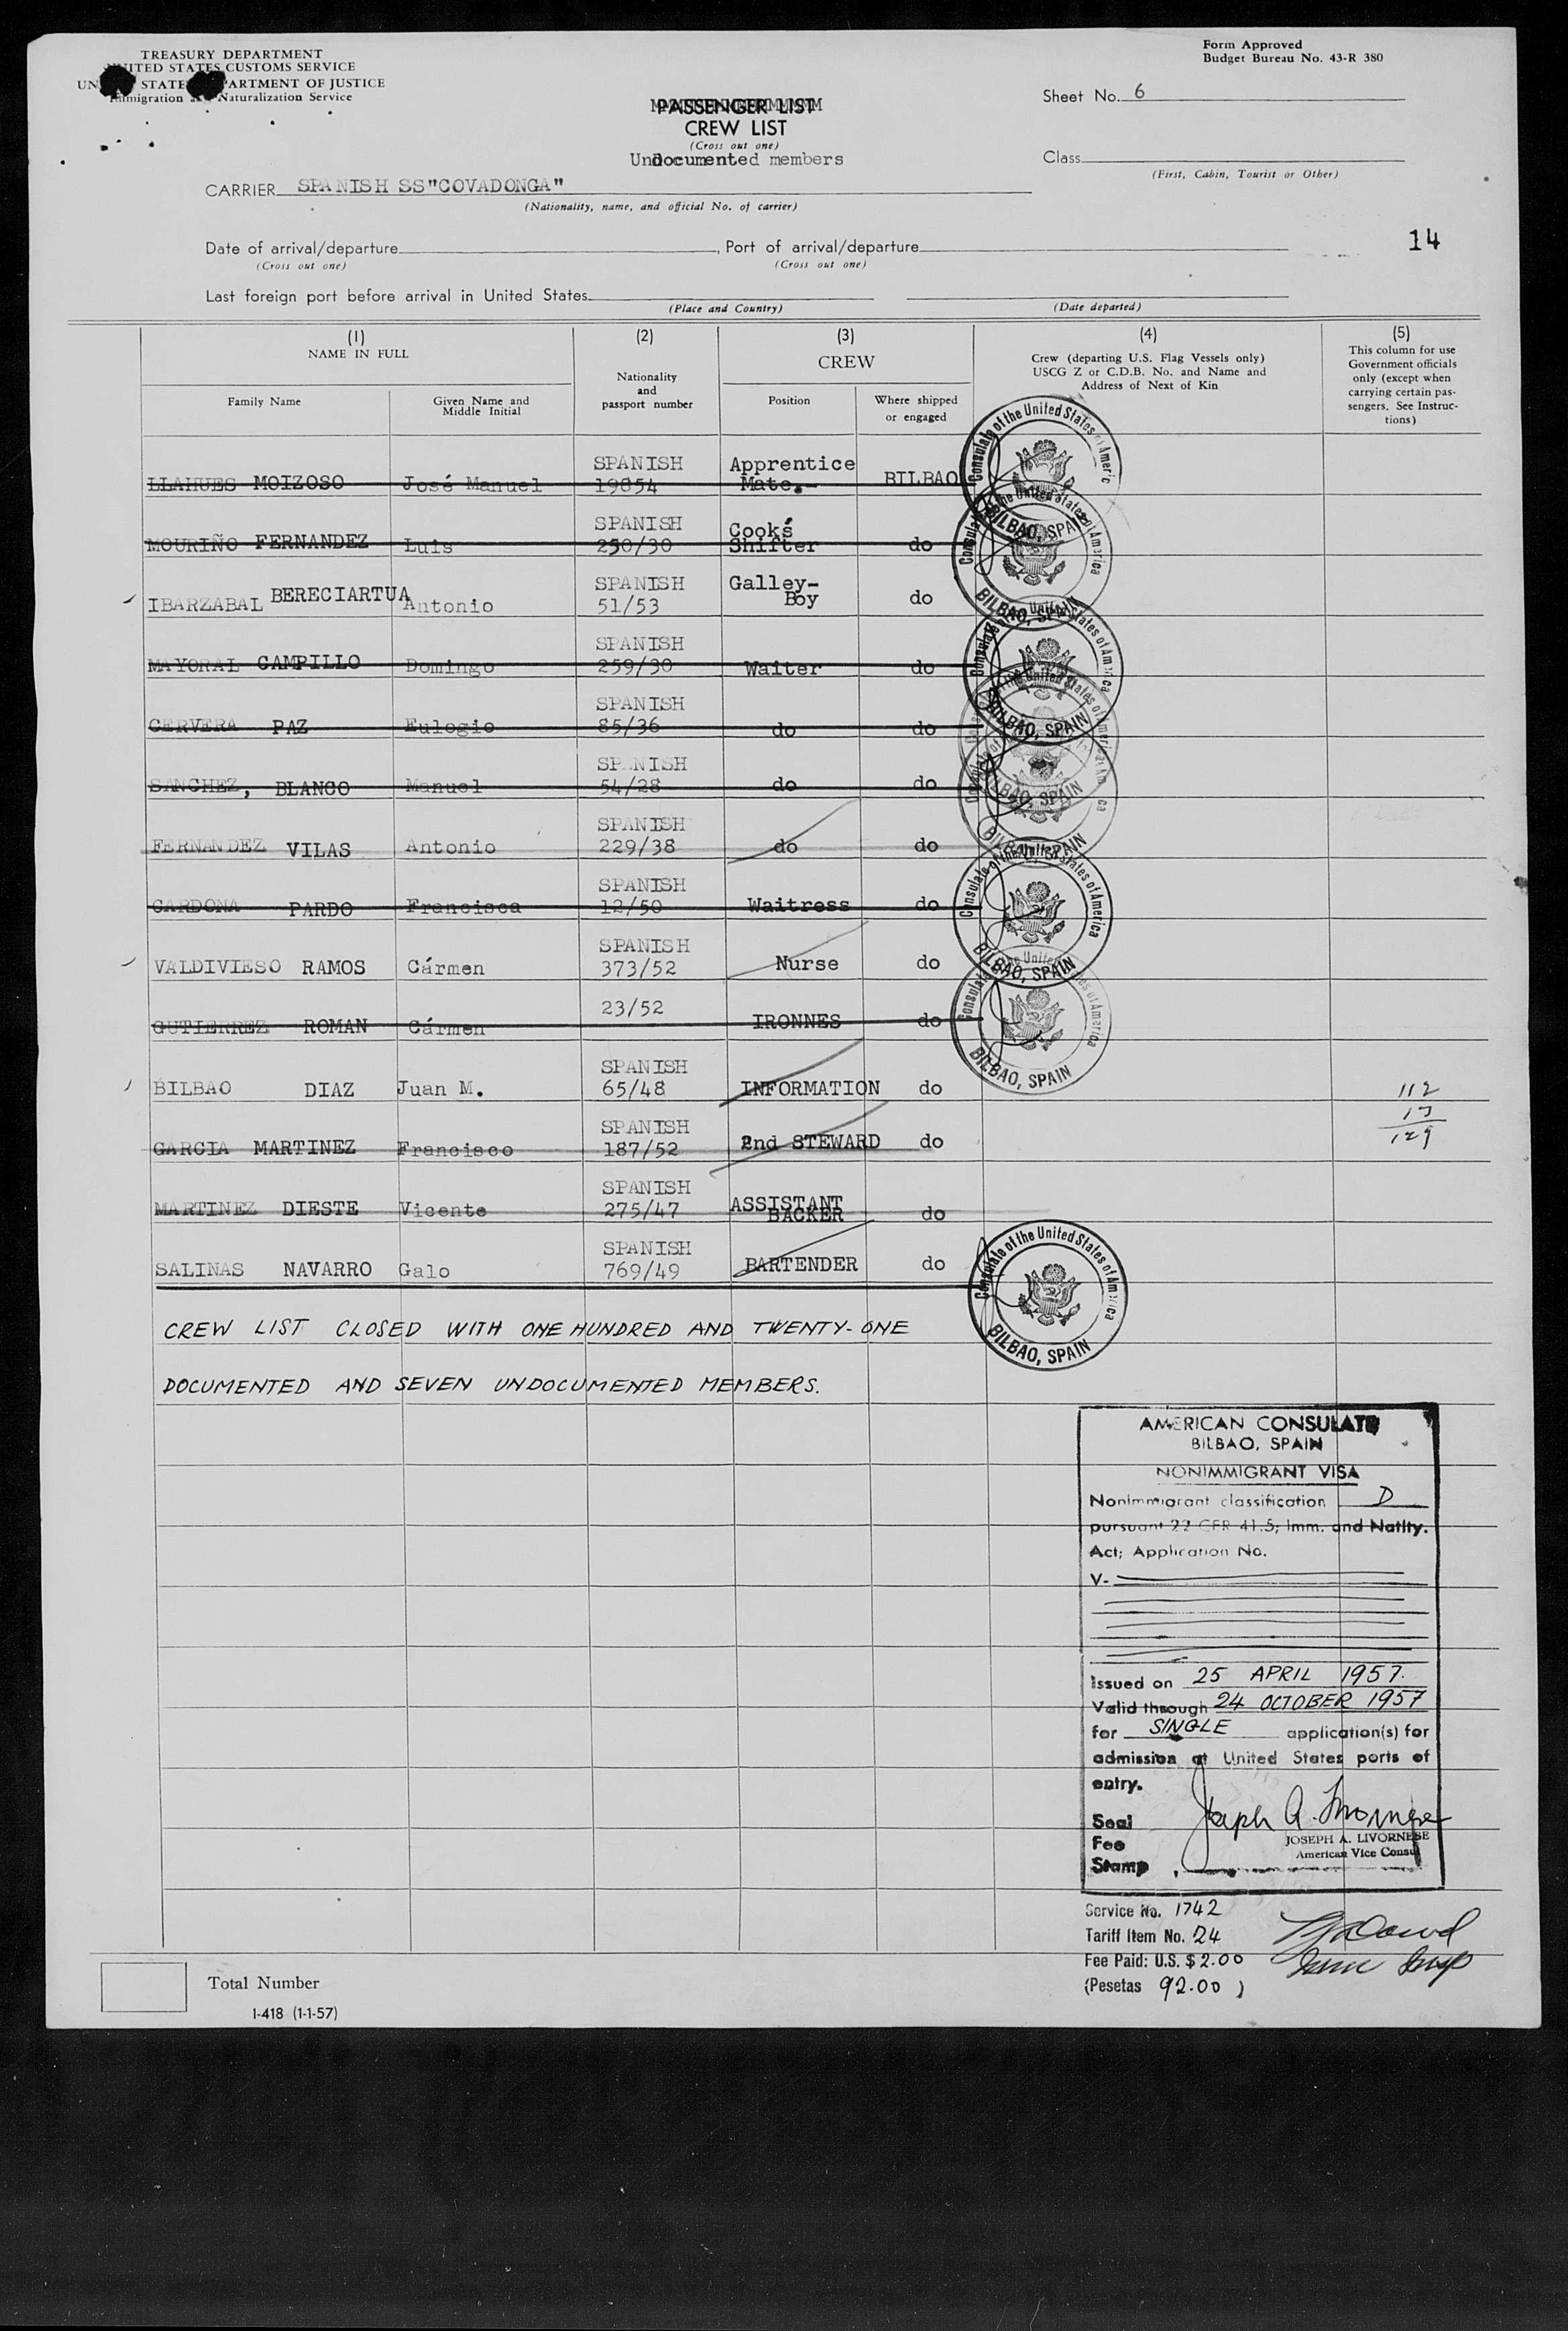 TREASURY DEPARTMENT
UNITED STATES CUSTOMS SERVICE
UNITED STATES DEPARTMENT OF JUSTICE
Immigration and Naturalization Service
Form Approved
Budget Bureau No. 43-R 380
PASSENGER LIST
CREW LIST
(Cross out one)
Undocumented members
Sheet No. 6
Class
(First, Cabin, Tourist or Other)
CARRIER SPANISH SS"COVADONGA"
(Nationality, name, and official No. of carrier)
14
Date of arrival/departure , Port of arrival/departure
(Cross out one) (Cross out one)
Last foreign port before arrival in United States
(Place and Country) (Date departed)
(1) (2) (3) (4) (5)
NAME IN FULL
Family Name
Given Name and Middle Initial
Nationality and passport number
CREW
Position
Where shipped or engaged
Crew (departing U.S. Flag Vessels only)
USCG Z or C.D.B. No. and Name and
Address of Next of Kin
This column for use
Government officials
only (except when
carrying certain pas-
sengers. See Instruc-
tions)
LLAHUES MOIZOSO José Manuel SPANISH 19854 Apprentice Mate.- BILBAO
MOURIÑO FERNANDEZ Luis SPANISH 250/30 Cook´s Shifter do
IBARZABAL BERECIARTUA Antonio SPANISH 51/53 Galley-Boy do
MAYORAL CAMPILLO Domingo SPANISH 259/30 Waiter do
CERVERA PAZ Eulogio SPANISH 85/36 do do
SANCHEZ, BLANCO Manuel SPANISH 54/28 do do
FERNANDEZ VILAS Antonio SPANISH 229/38 do do
CARDONA PARDO Francisca SPANISH 12/50 Waitress do
VALDIVIESO RAMOS Cármen SPANISH 373/52 Nurse do
GUTIERREZ ROMAN Cármen 23/52 IRONNES do
BILBAO DIAZ Juan M. SPANISH 65/48 INFORMATION do
112
17
129
GARCIA MARTINEZ Francisco SPANISH 187/52 2nd STEWARD do
MARTINEZ DIESTE Vicente SPANISH 275/47 ASSISTANT BACKER do
SALINAS NAVARRO Galo SPANISH 769/49 BARTENDER do
Consulate of the United States of America
BILBAO, SPAIN
Consulate of the United States of America
BILBAO, SPAIN
Consulate of the United States of America
BILBAO, SPAIN
Consulate of the United States of America
BILBAO, SPAIN
Consulate of the United States of America
BILBAO, SPAIN
Consulate of the United States of America
BILBAO, SPAIN
Consulate of the United States of America
BILBAO, SPAIN
Consulate of the United States of America
BILBAO, SPAIN
CREW LIST CLOSED WITH ONE HUNDRED AND TWENTY-ONE
DOCUMENTED AND SEVEN UNDOCUMENTED MEMBERS.
AMERICAN CONSULATE
BILBAO, SPAIN
NONIMMIGRANT VISA
Nonimmigrant classification D
pursuant 22 CFR 41.5; Imm. and Natlty.
Act; Application No.
V-
Issued on 25 APRIL 1957.
Valid through 24 OCTOBER 1957
for SINGLE application(s) for
admission at United States ports of
entry.
Seal
Fee
Stamp
Joseph A. Livornese
JOSEPH A. LIVORNESE
American Vice Consul
Service No. 1742
Tariff Item No. 24
Fee Paid: U.S. $ 2.00
(Pesetas 92.00 )
Imm Insp
Total Number
I-418 (1-1-57)